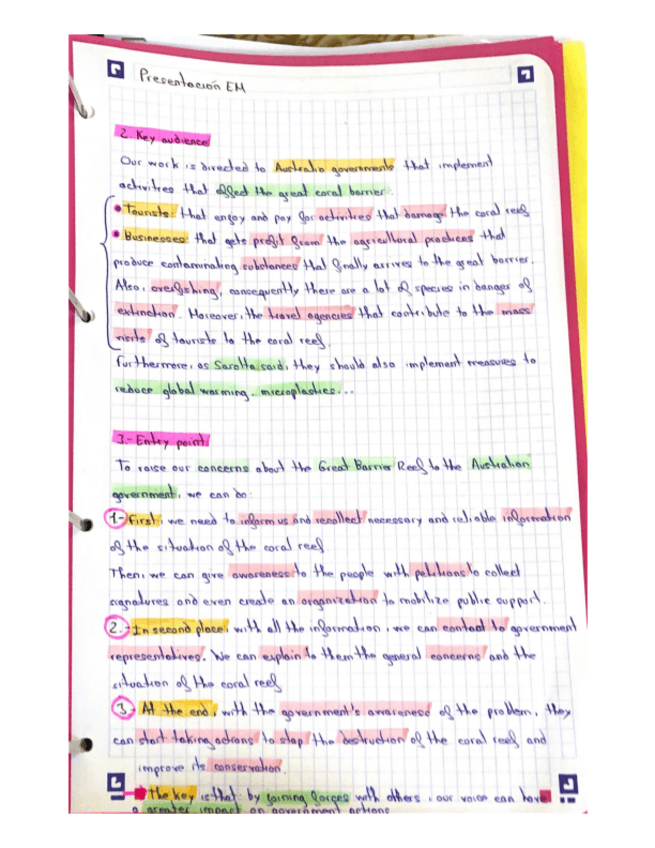 Presentación EM
2. Key audience
Our work is directed to Australia governments that implement
activities that affect the great coral barrier.
• Tourists: that enjoy and pay for activities that damage the coral reef
• Businesses: that gets profit from the agricultural practices that
produce contaminating substances that finally arrives to the great barrier.
Also, overfishing, consequently there are a lot of species in danger of
extinction. Moreover, the travel agencies that contribute to the mass
visits of tourists to the coral reef.
Furthermore, as Sarotta said, they should also implement measures to
reduce global warming, microplastics...
3.- Entry point
To raise our concerns about the Great Barrier Reef to the Australian
government, we can do:
1- First, we need to inform us and recollect necessary and reliable information
of the situation of the coral reef
Then, we can give awareness to the people with petitions to collect
signatures and even create an organization to mobilize public support.
2.- In second place, with all the information, we can contact to government
representatives. We can explain to them the general concerns and the
situation of the coral reef
3- At the end, with the government's awareness of the problem, they
can start taking actions to stop the destruction of the coral reef and
improve its conservation.
The key is that by joining forces with others, our voice can have
a greater impact on government actions